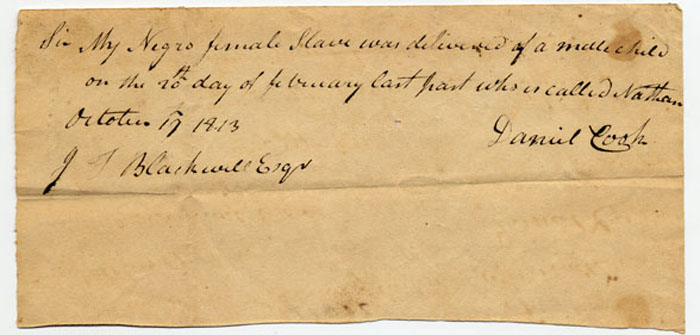 Sir My Negro female Slave was delivered of a male child
on the 20th day of february last past who is called Nathan
October 19 1813 Daniel Cook
J F Blackwell Esqr